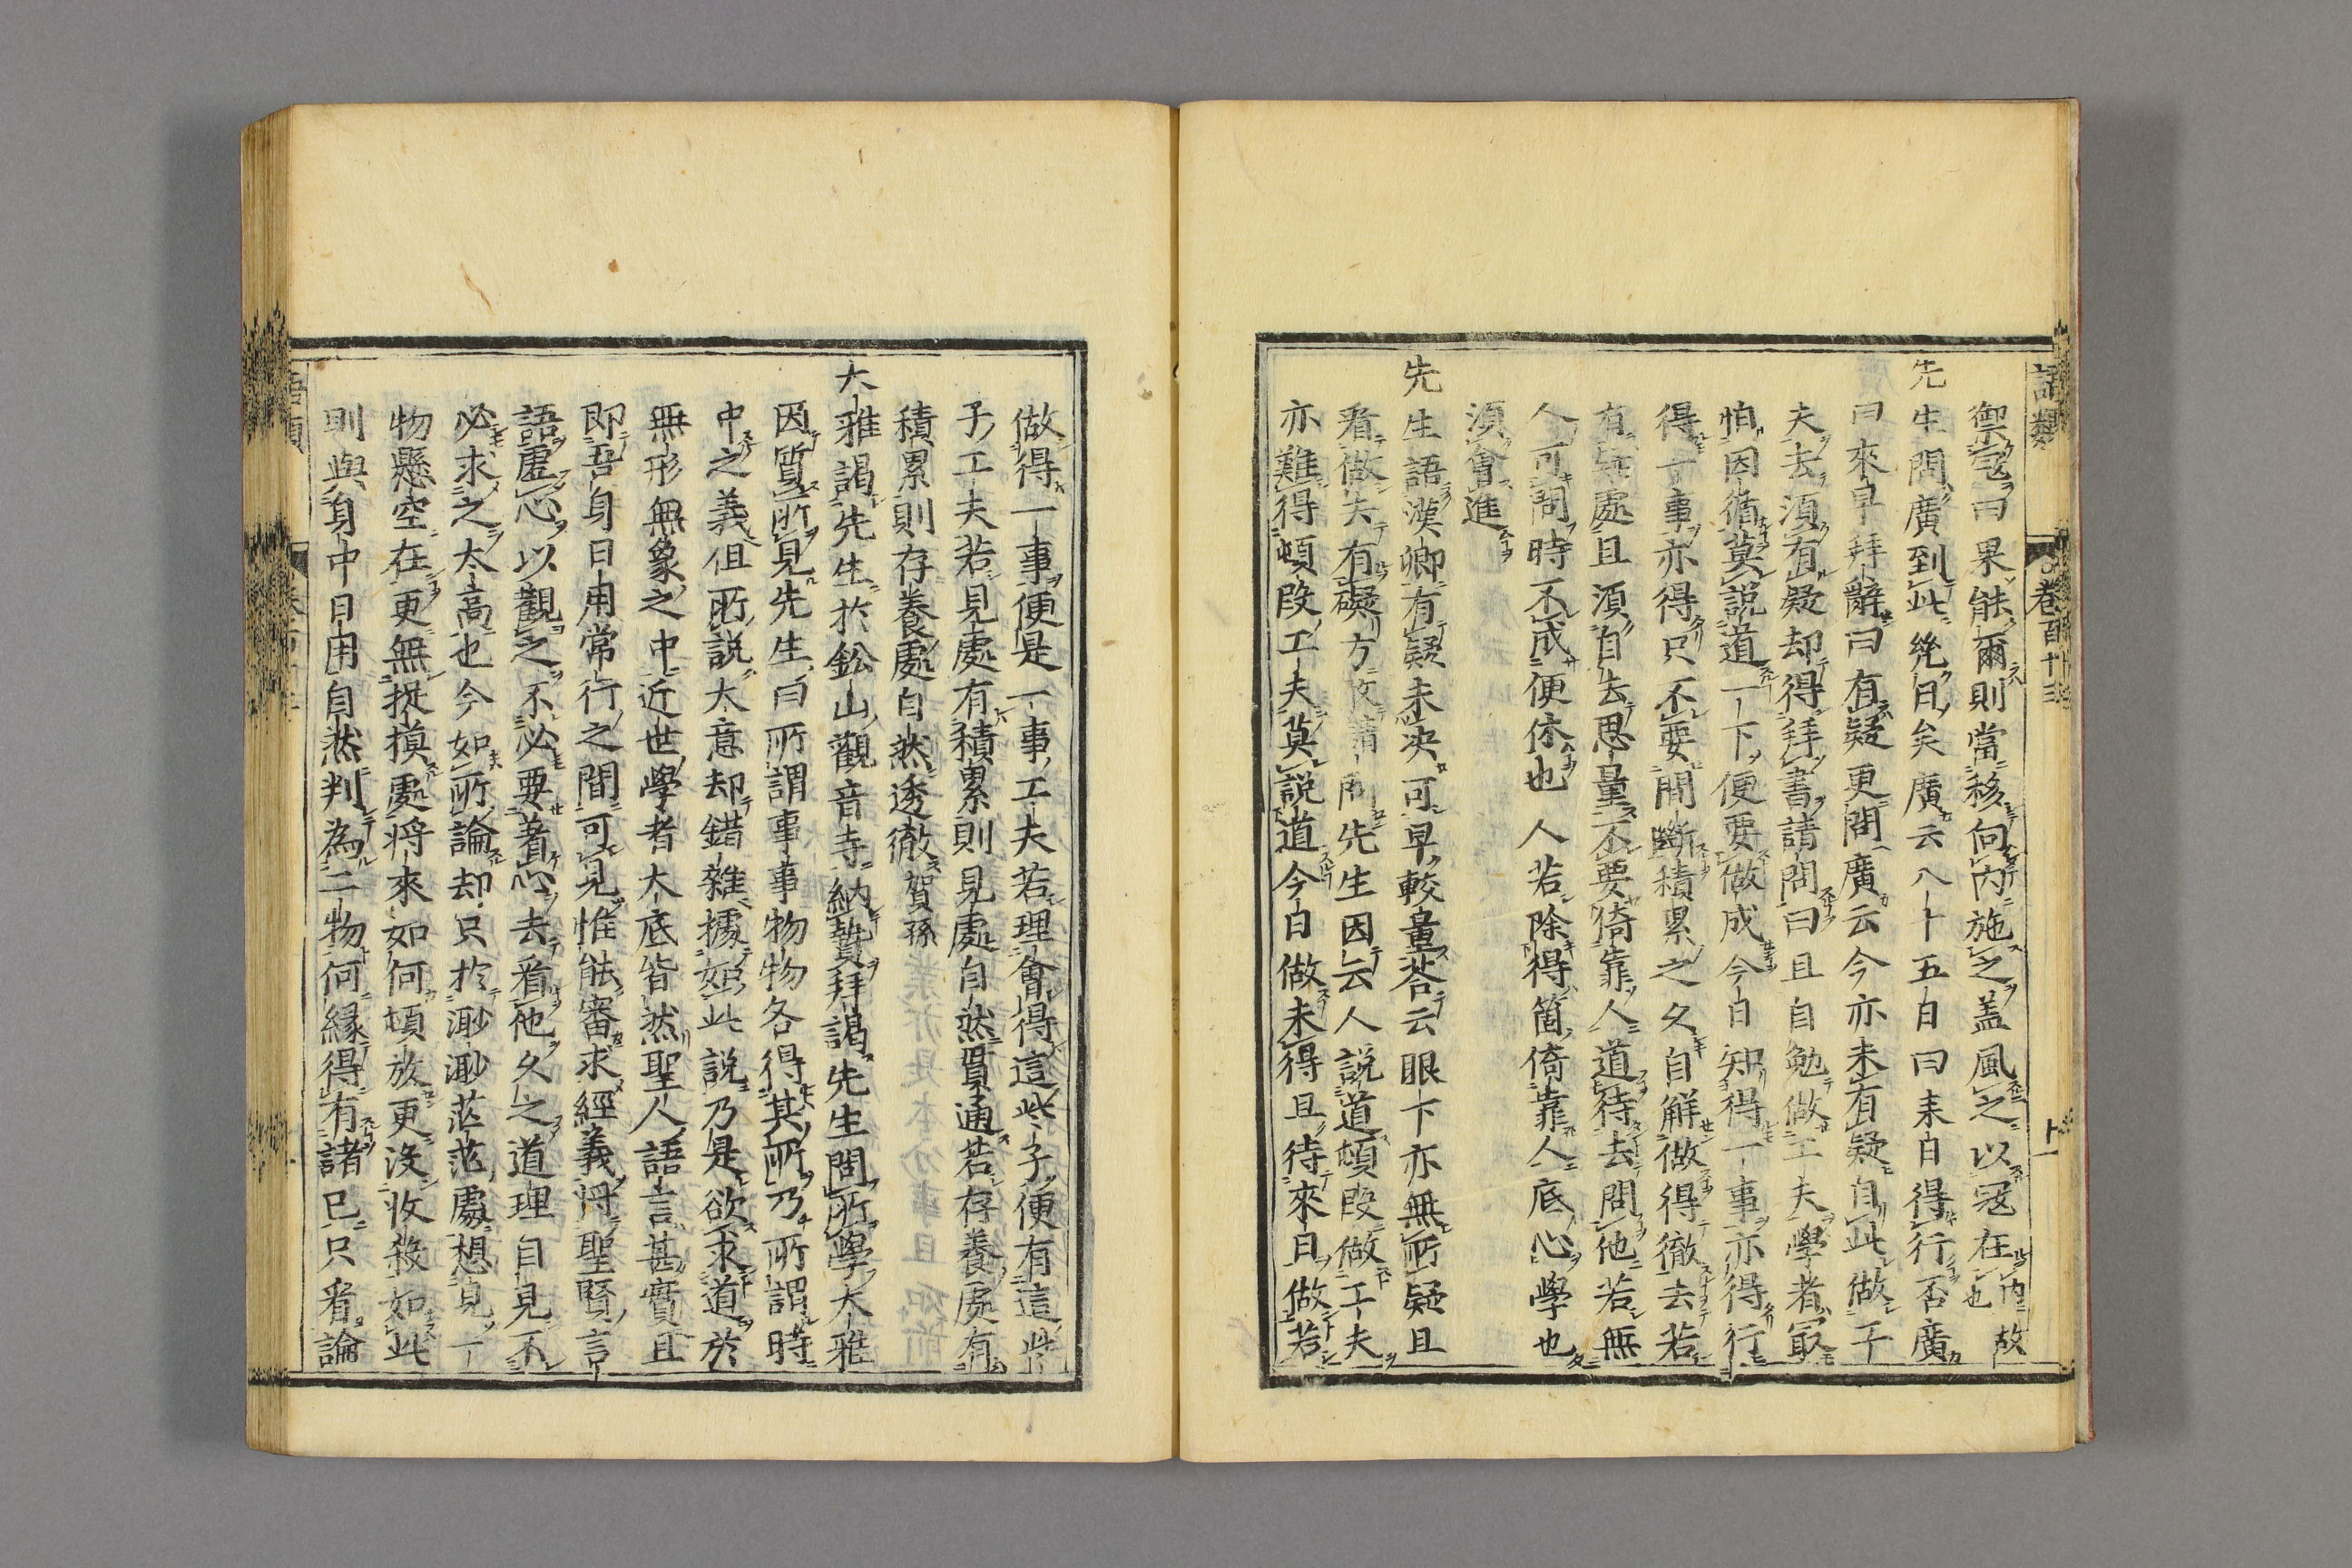 語類 卷百十三 十一
禦寇曰果能爾則當移向內施之盖風之以寇在內故也
先生問廣到此幾日矣廣云八十五日曰來日得行否廣
曰來早拜辭曰有疑更問廣云今亦未有疑自此做工
夫去須有疑却得拜書請問曰且自勉做工夫學者冣
怕因循莫說道一下便要做成今日知得一事亦得行
得一事亦得只不要間斷積累之久自解做得徹去若
有疑處且須自去思量不要倚靠人道待去問他若無
人可問時不成便休也人若除得箇倚靠人底心學也
須會進
先生語漢卿有疑未决可早較量荅云眼下亦無所疑且
看做去有礙方敢請問先生因云人說道頓段做工夫
亦難得頓段工夫莫說道今日做未得且待來日做若
做得一事便是一事工夫若理會得這些子便有這些
子工夫若見處有積累則見處自然貫通若存養處有
積累則存養處自然透徹賀孫
大雅謁先生於鉛山觀音寺納贄拜謁先生問所學大雅
因質所見先生曰所謂事事物物各得其所乃所謂時
中之義但所說大意却錯雜據如此說乃是欲求道於
無形無象之中近世學者大底皆然聖人語言甚實且
即吾身日用常行之間可見惟能審求經義將聖賢言
語虛心以觀之不必要著心去看他久之道理自見不
必求之太高也今如所論却只於渺渺茫茫處想見一
物懸空在更無捉摸處將來如何頓放更没收殺如此
則與身中日用自然判為二物何緣得有諸己只看論
語類